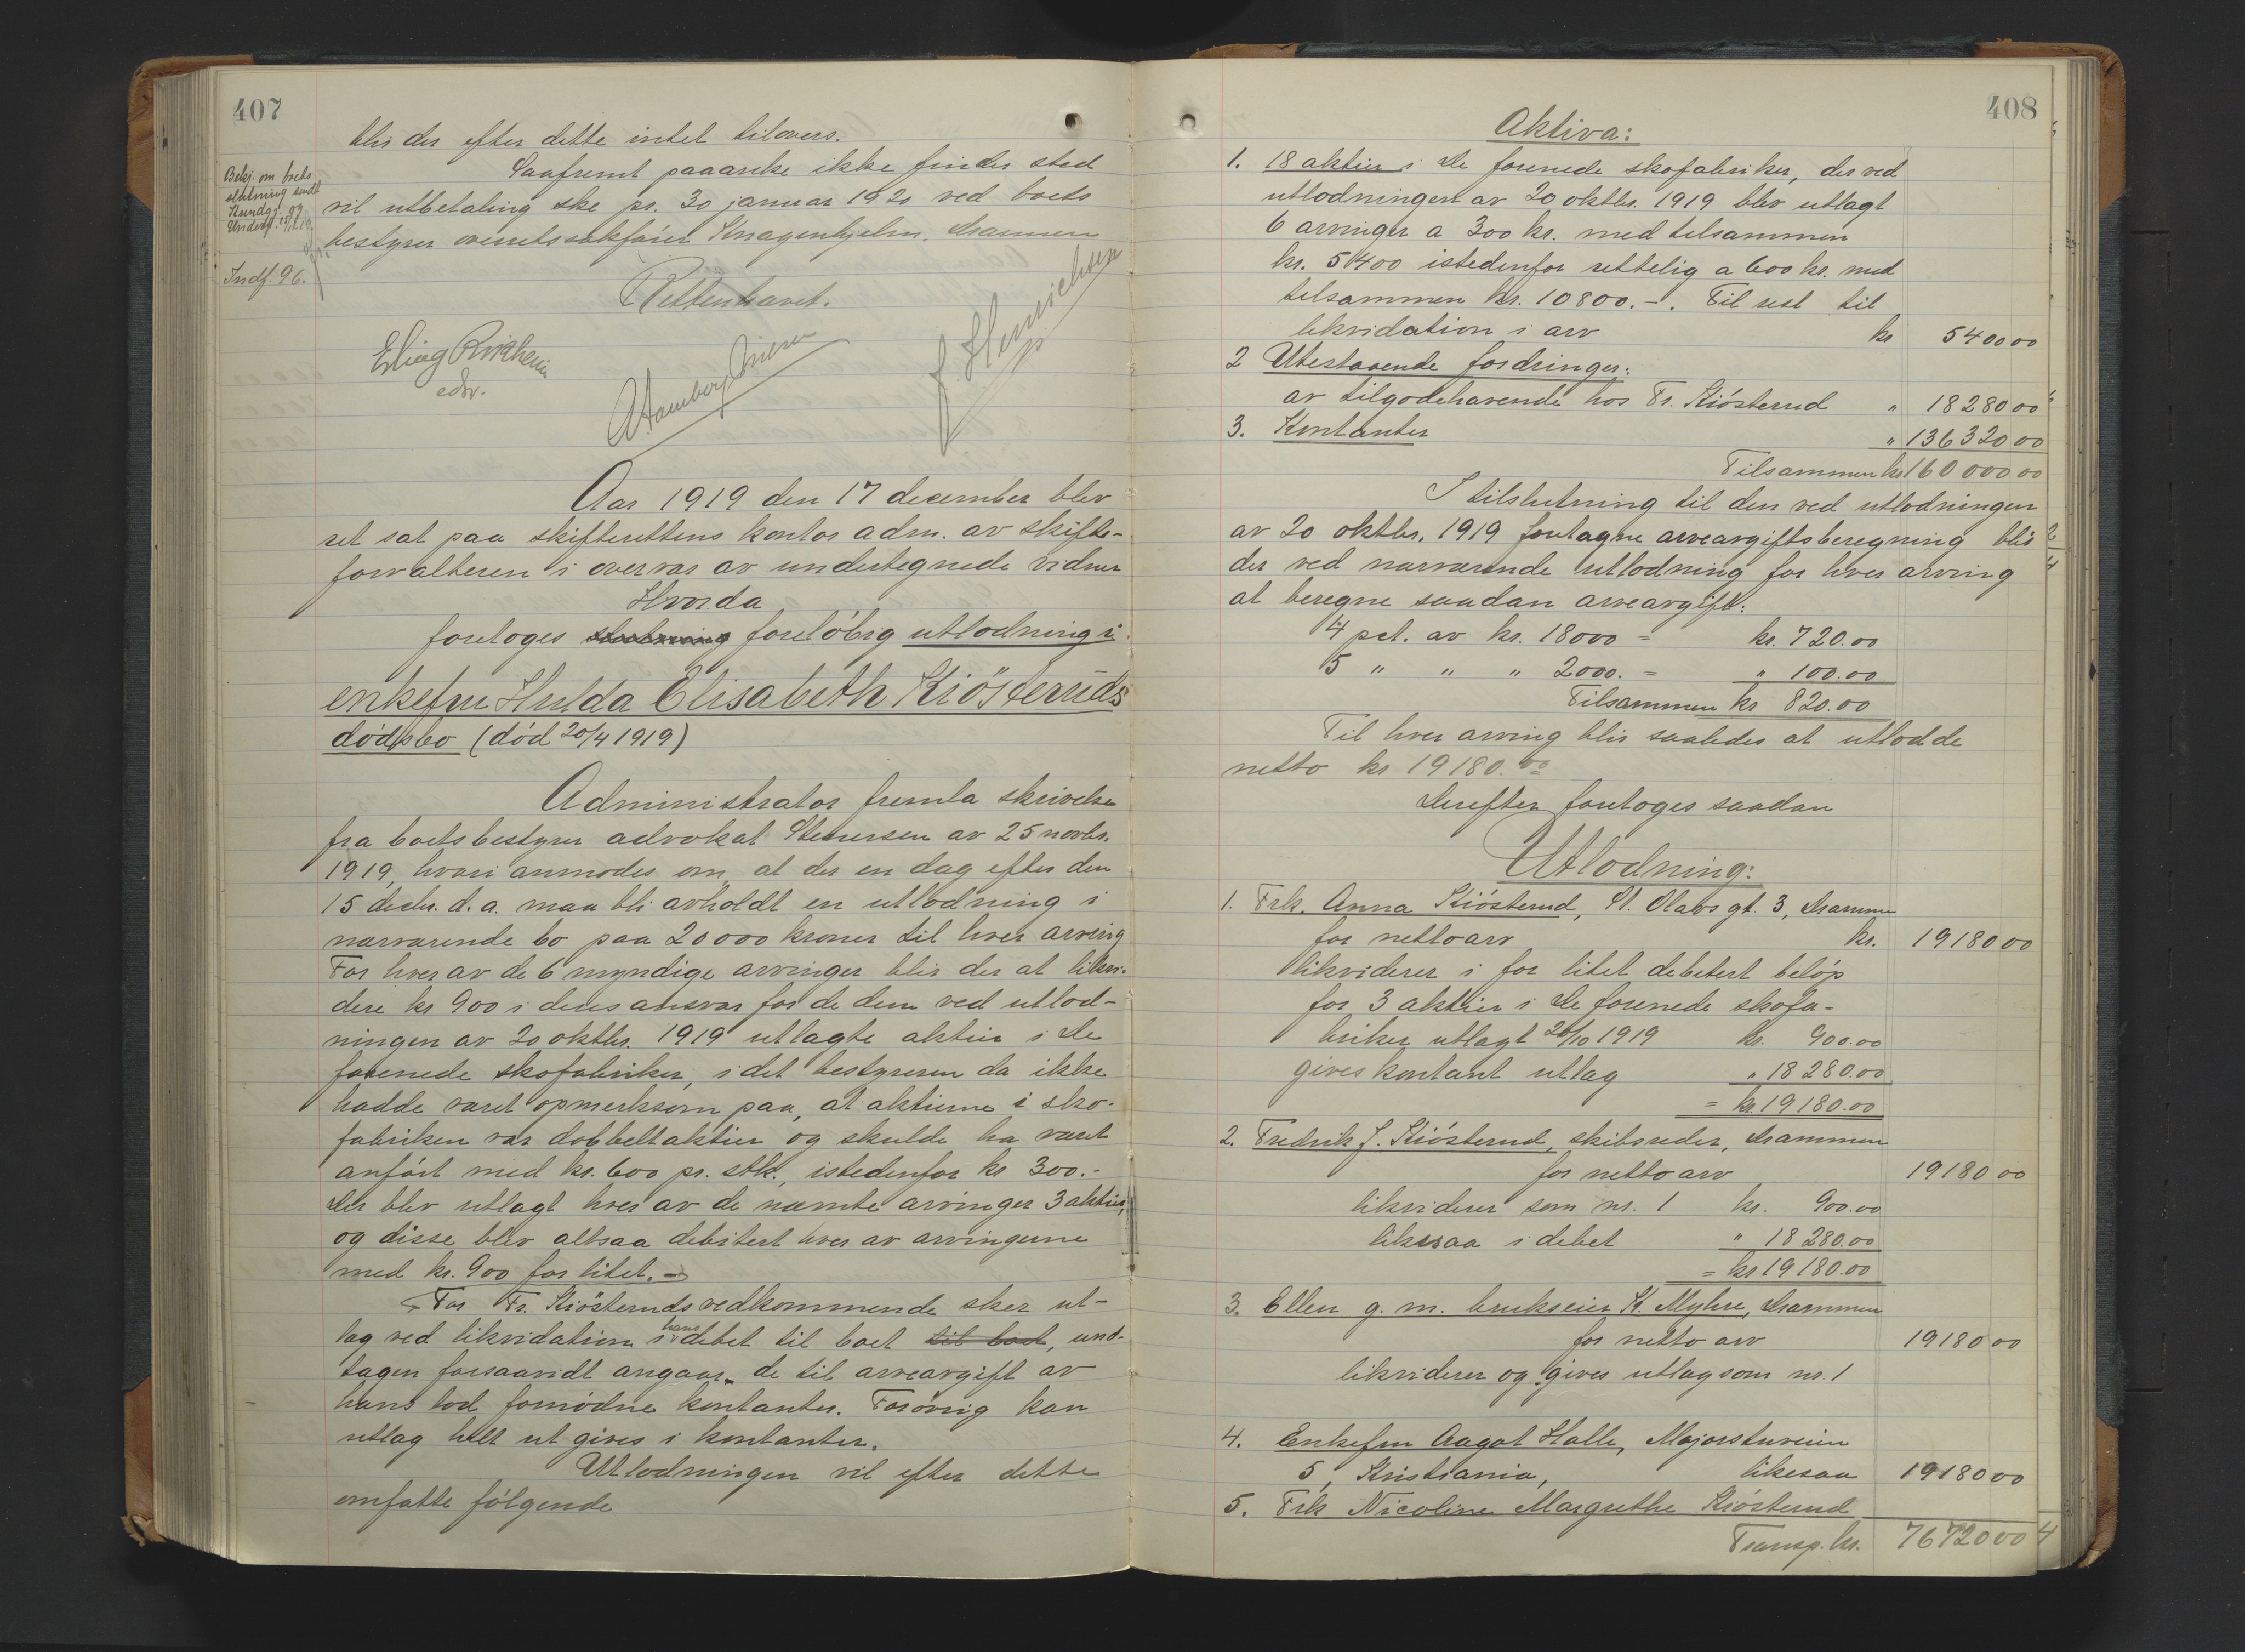 407
blir der efter dette intet tilovers.
Saafremt paaanke ikke finder sted
vil utbetaling ske pr. 30 januar 1920 ved boets
bestyrer overretssakfører Knagenhjelm, Drammen
Bekj. om boets
slutning sendt
Kundgj. og
Indf. 96.
Retten hævet.
Aar 1919 den 17 december blev
ret sat paa skifterettens kontor adm. av skifte-
forvalteren i overvær av undertegnede vidner
Hvorda
foretoges foreløbig utlodning i
enkefru Hulda Elisabeth Kiøsteruds
dødsbo (død 20/4 1919)
Administrator fremla skrivelse
fra boets bestyrer advokat Stenersen av 25 novbr.
1919, hvori anmodes om, at der en dag efter den
15 decbr. d. a. maa bli avholdt en utlodning i
nærværende bo paa 20000 kroner til hver arving
For hver av de 6 myndige arvinger blir der at likvi-
dere kr 900 i deres ansvar for de dem ved utlod-
ningen av 20 oktbr. 1919 utlagte aktier i De
forenede skofabriker, idet bestyreren da ikke
hadde været opmerksom paa, at aktierne i sko-
fabriken var dobbeltaktier og skulde ha været
anført med kr. 600 pr. stk., istedenfor kr 300.-
Der blev utlagt hver av de nævnte arvinger 3 aktier,
og disse blev altsaa debitert hver av arvingerne
med kr. 900 for litet.-
For Fr. Kiøsteruds vedkommende sker ut-
lag ved likvidation i hans debet til boet til boet, und-
tagen forsaavidt angaar de til arveavgift av
hans lod fornødne kontanter. Forøvrig kan
utlag helt ut gives i kontanter.
Utlodningen vil efter dette
omfatte følgende
408
Aktiva:
1. 18 aktier i De forenede skofabriker, der ved
utlodningen av 20 oktbr. 1919 blev utlagt
6 arvinger a 300 kr. med tilsammen
kr. 5400 istedenfor rettelig a 600 kr. med
tilsammen kr. 10800.-. Til rest til
likvidation i arv kr 5400 00
2 Utestaaende fordringer:
av tilgodehavende hos Fr. Kiøsterud " 18280 00
3. Kontanter " 136320 00
Tilsammen kr 160000 00
I tilslutning til den ved utlodningen
av 20 oktbr. 1919 foretagne arveavgiftsberegning blir
der ved nærværende utlodning for hver arving
at beregne saadan arveavgift:
4 pct. av kr. 18000 = kr. 720.00
5 " " " 2000. = " 100.00
Tilsammen kr 820.00
Til hver arving blir saaledes at utlodde
netto kr 19180.00
Derefter foretoges saadan
Utlodning:
1. Frk. Anna Kiøsterud, St. Olavs gt. 3, Drammen
for nettoarv kr. 19180 00
likviderer i for litet debitert beløp
for 3 aktier i De forenede skofa-
briker utlagt 20/10 1919 kr. 900.00
gives kontant utlag " 18280.00
= kr. 19180.00
2. Fredrik J. Kiøsterud, skibsreder, Drammen
for nettoarv 19180 00
likviderer som nr. 1 kr. 900.00
likesaa i debet " 18280.00
= kr 19180.00
3. Ellen g. m. brukseier K. Myhre, Drammen
for netto arv 19180 00
likviderer og gives utlag som nr. 1
4. Enkefru Aagot Halle, Majorstuveien
5, Kristiania, likesaa 19180 00
5. Frk Nicoline Margrethe Kiøsterud
Transp. kr. 76720 00